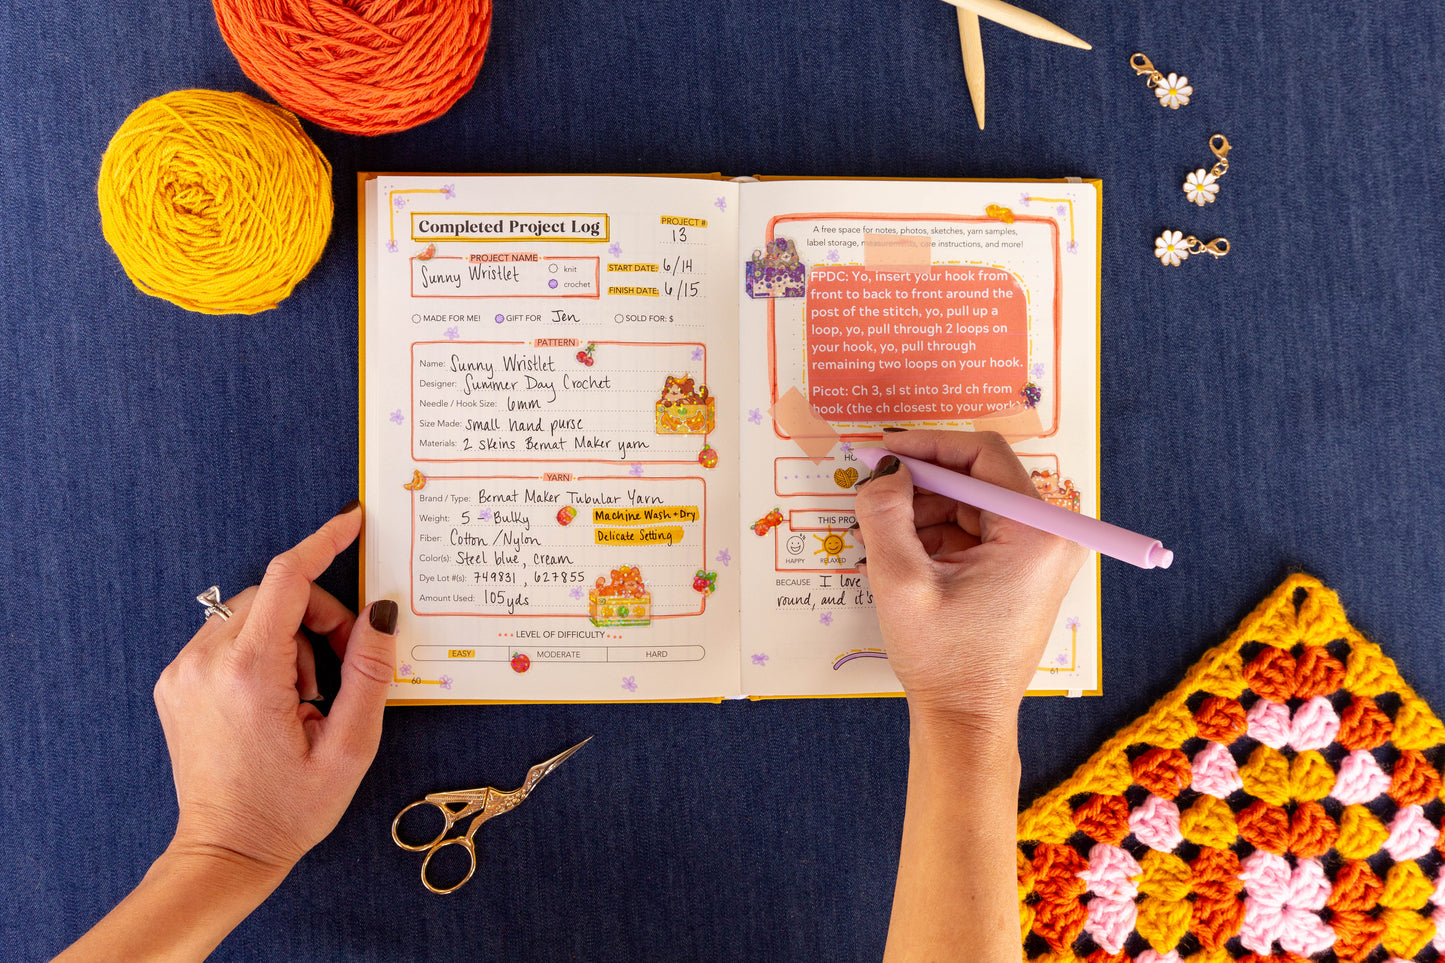 Completed Project Log
PROJECT #
13
PROJECT NAME
Sunny Wristlet
knit
crochet
START DATE: 6/14
FINISH DATE: 6/15
MADE FOR ME! GIFT FOR Jen SOLD FOR: $
PATTERN
Name: Sunny Wristlet
Designer: Summer Day Crochet
Needle / Hook Size: 6mm
Size Made: small hand purse
Materials: 2 skeins Bernat Maker yarn
YARN
Brand / Type: Bernat Maker Tubular Yarn
Weight: 5 - Bulky
Machine Wash + Dry
Fiber: Cotton / Nylon
Delicate Setting
Color(s): Steel blue, cream
Dye Lot #(s): 749831, 627855
Amount Used: 105 yds
LEVEL OF DIFFICULTY
EASY MODERATE HARD
60
A free space for notes, photos, sketches, yarn samples,
label storage, measurements, care instructions, and more!
FPDC: Yo, insert your hook from
front to back to front around the
post of the stitch, yo, pull up a
loop, yo, pull through 2 loops on
your hook, yo, pull through
remaining two loops on your hook.
Picot: Ch 3, sl st into 3rd ch from
hook (the ch closest to your work)
HO
THIS PRO
HAPPY RELAXED
BECAUSE I love
round, and it's
61